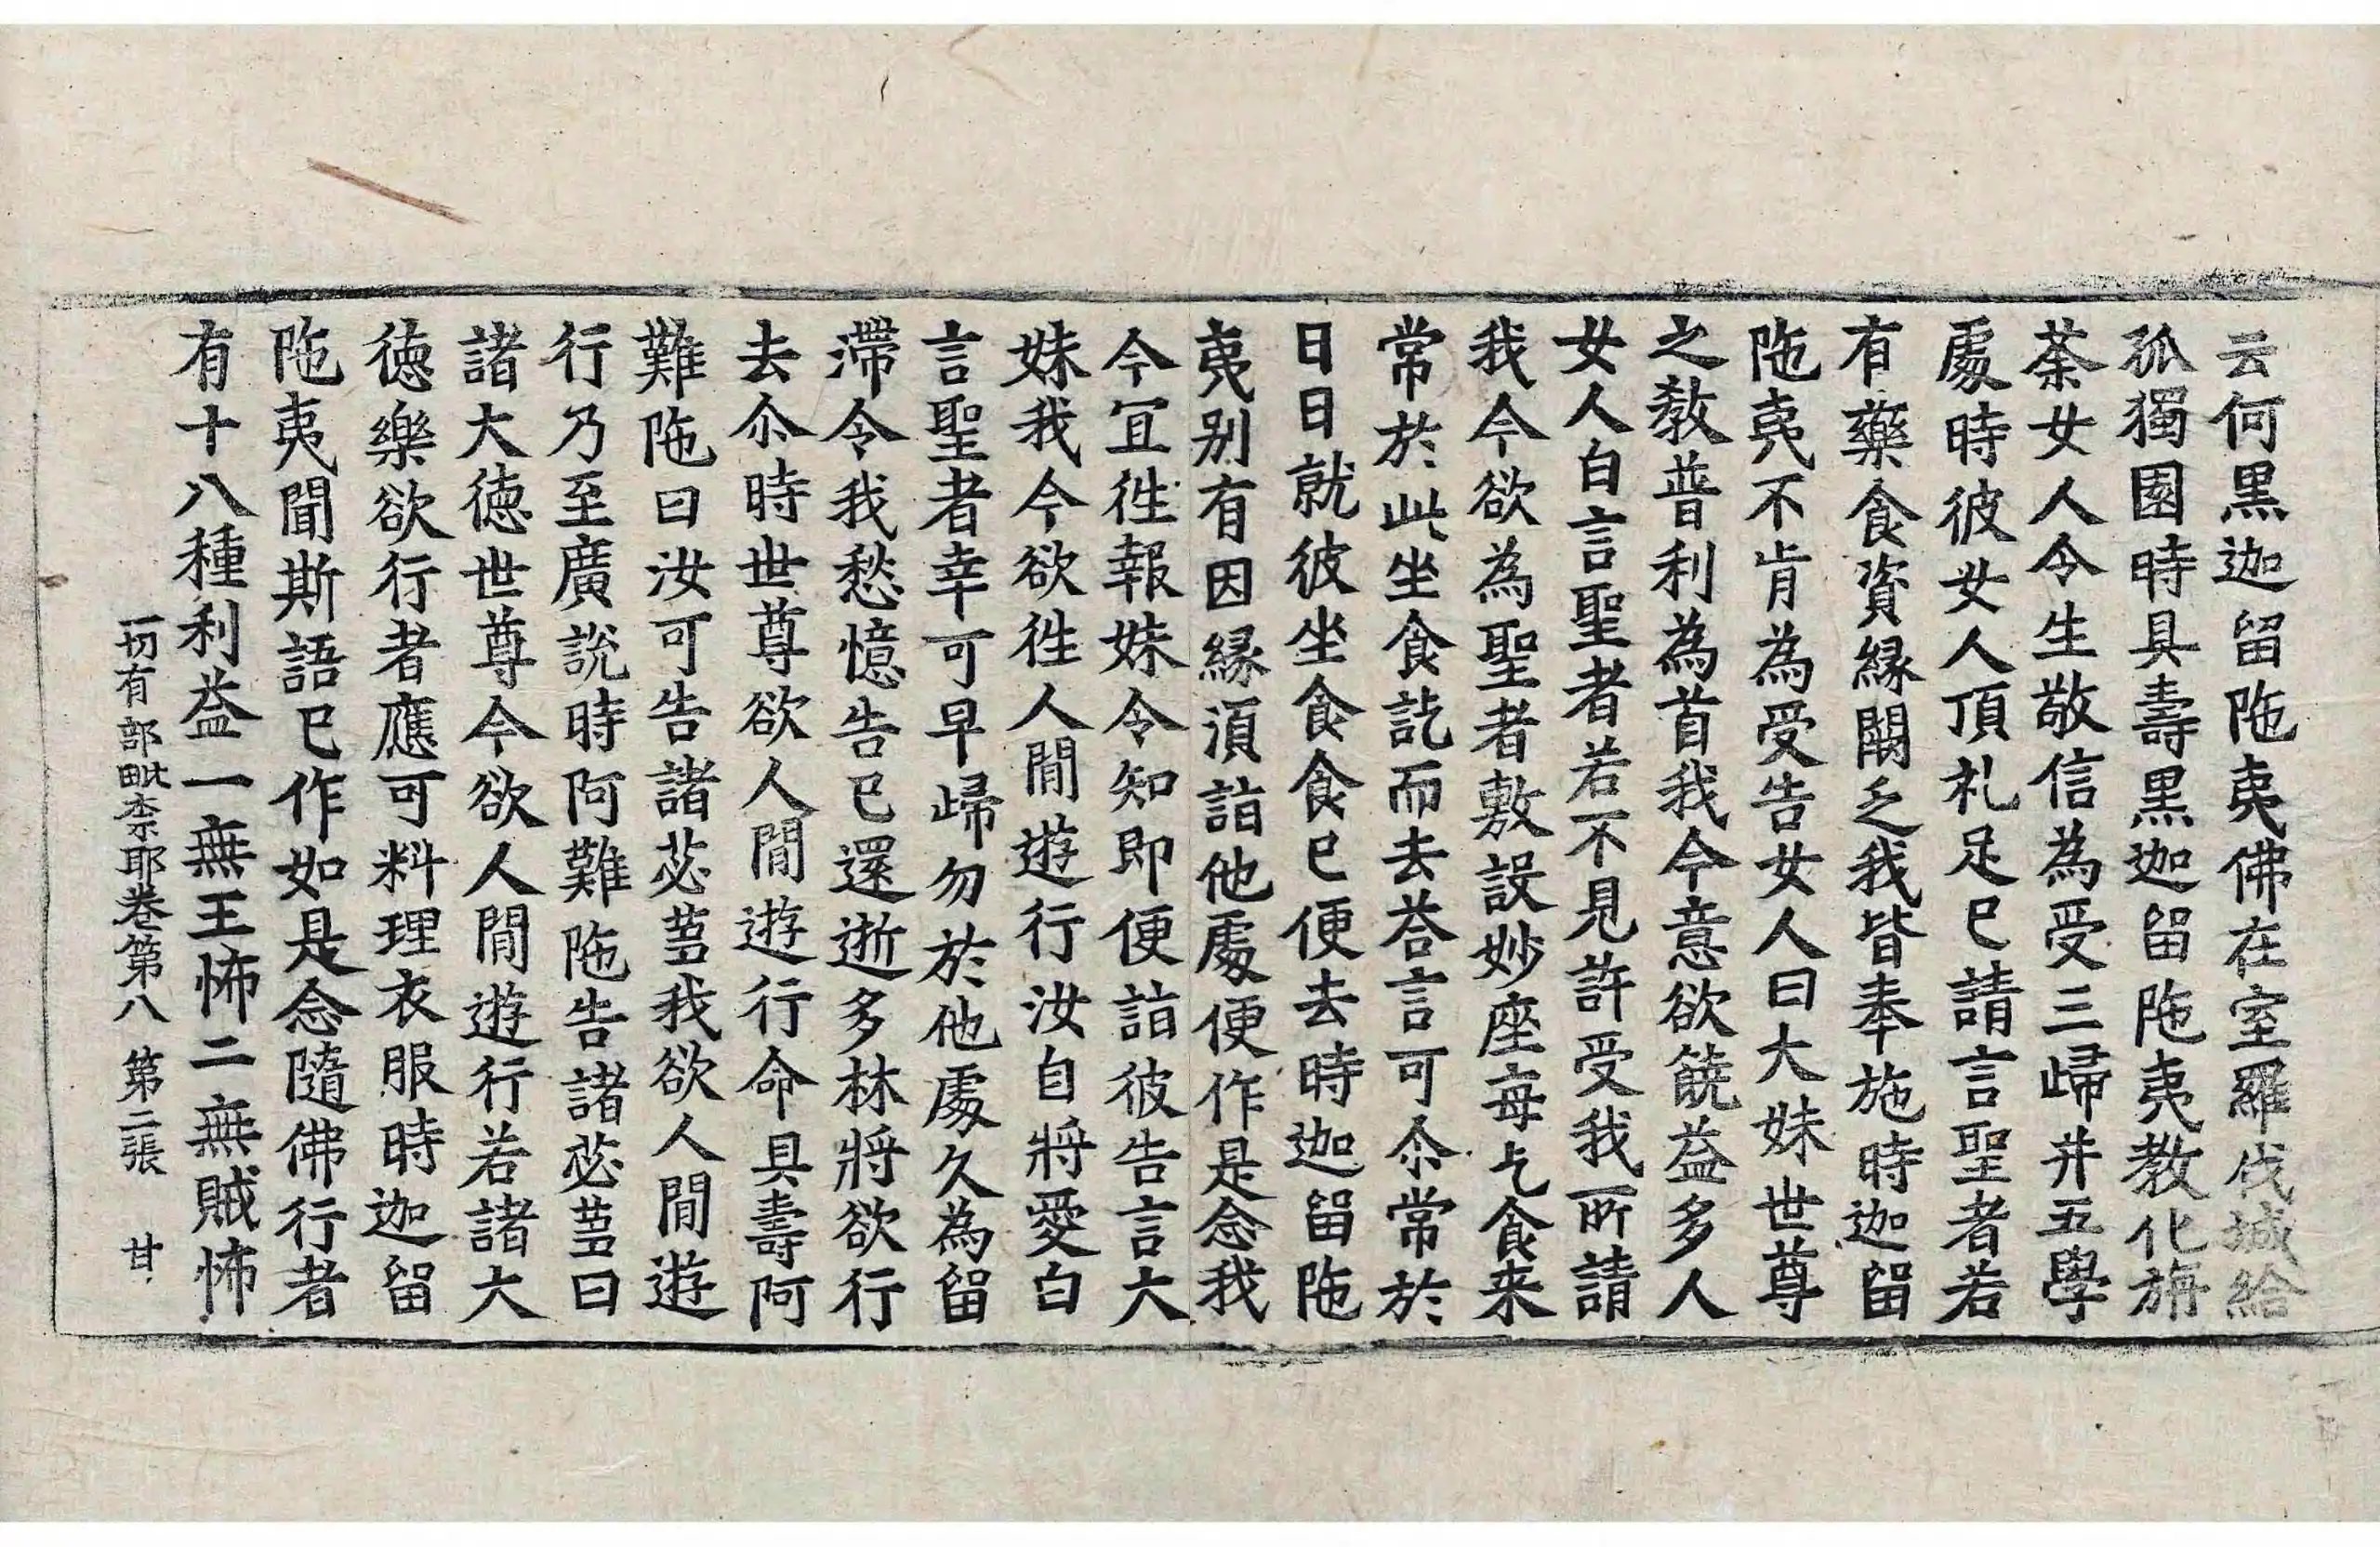 云何黒迦留陁夷佛在室羅伐城給
孤獨園時具壽黒迦留陁夷教化旃
荼女人令生敬信為受三歸并五學
處時彼女人頂礼足已請言聖者若
有藥食資緣闕乏我皆奉施時迦留
陁夷不肯為受告女人曰大妹世尊
之教普利為首我今意欲饒益多人
女人白言聖者若不見許受我所請
我今欲為聖者敷設妙座每乞食来
常於此坐食訖而去荅言可尒常於
日日就彼坐食食已便去時迦留陁
夷别有因緣湏詣他處便作是念我
今冝徃報妹令知即便詣彼告言大
妹我今欲徃人閒遊行汝自將愛白
言聖者幸可早歸勿於他處久為留
滯令我愁憶告已還逝多林將欲行
去尒時世尊欲人閒遊行命具壽阿
難陁曰汝可告諸苾蒭我欲人閒遊
行乃至廣說時阿難陁告諸苾蒭曰
諸大徳世尊今欲人閒遊行若諸大
徳樂欲行者應可料理衣服時迦留
陁夷聞斯語已作如是念隨佛行者
有十八種利益一無王怖二無賊怖
一切有部毗柰耶卷第八 第二張 甘